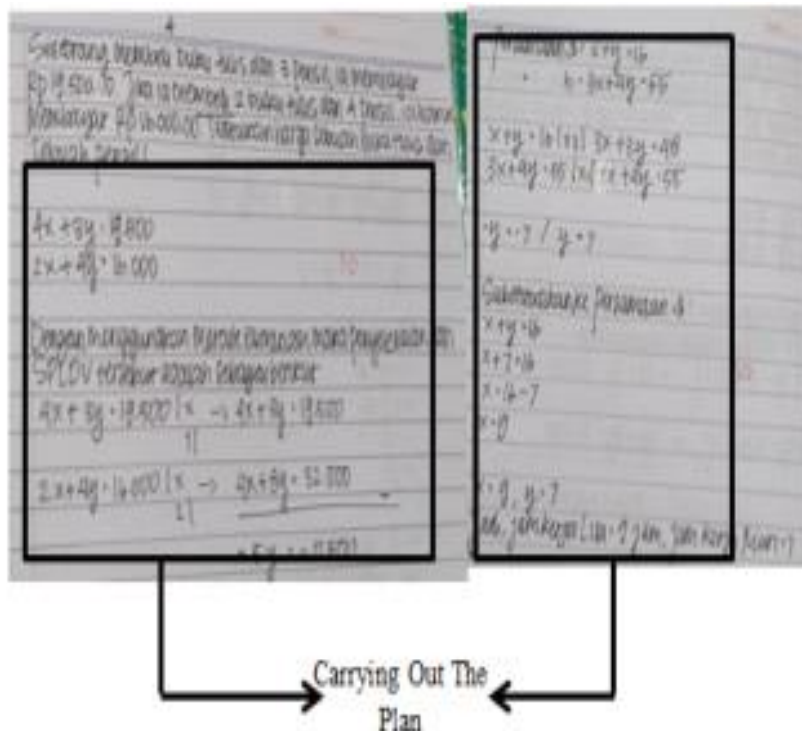 4
Seseorang membeli buku tulis dan 3 pensil, ia membayar
Rp 19.500.00 Jika ia membeli 2 buku tulis dan 4 pensil, ia harus
membayar Rp 16.000.00 Tentukan harga buku tulis dan
sebuah pensil!
4x + 3y = 19.500
2x + 4y = 16.000
Dengan menggunakan metode eliminasi, maka penyelesaian dari
SPLDV tersebut adalah sebagai berikut
4x + 3y = 19.500 | x → 4x + 3y = 19.500
1 |
2x + 4y = 16.000 | x → 4x + 8y = 32.000
2 |
x + y = 16
3x + 4y = 55
x + y = 16 | x3 | 3x + 3y = 48
3x + 4y = 55 | x1 | 3x + 4y = 55
-y = -7 / y = 7
persamaan
x + y = 16
x + 7 = 16
x = 16 - 7
x = 9
x = 9, y = 7
jam kerja
Carrying Out The
Plan